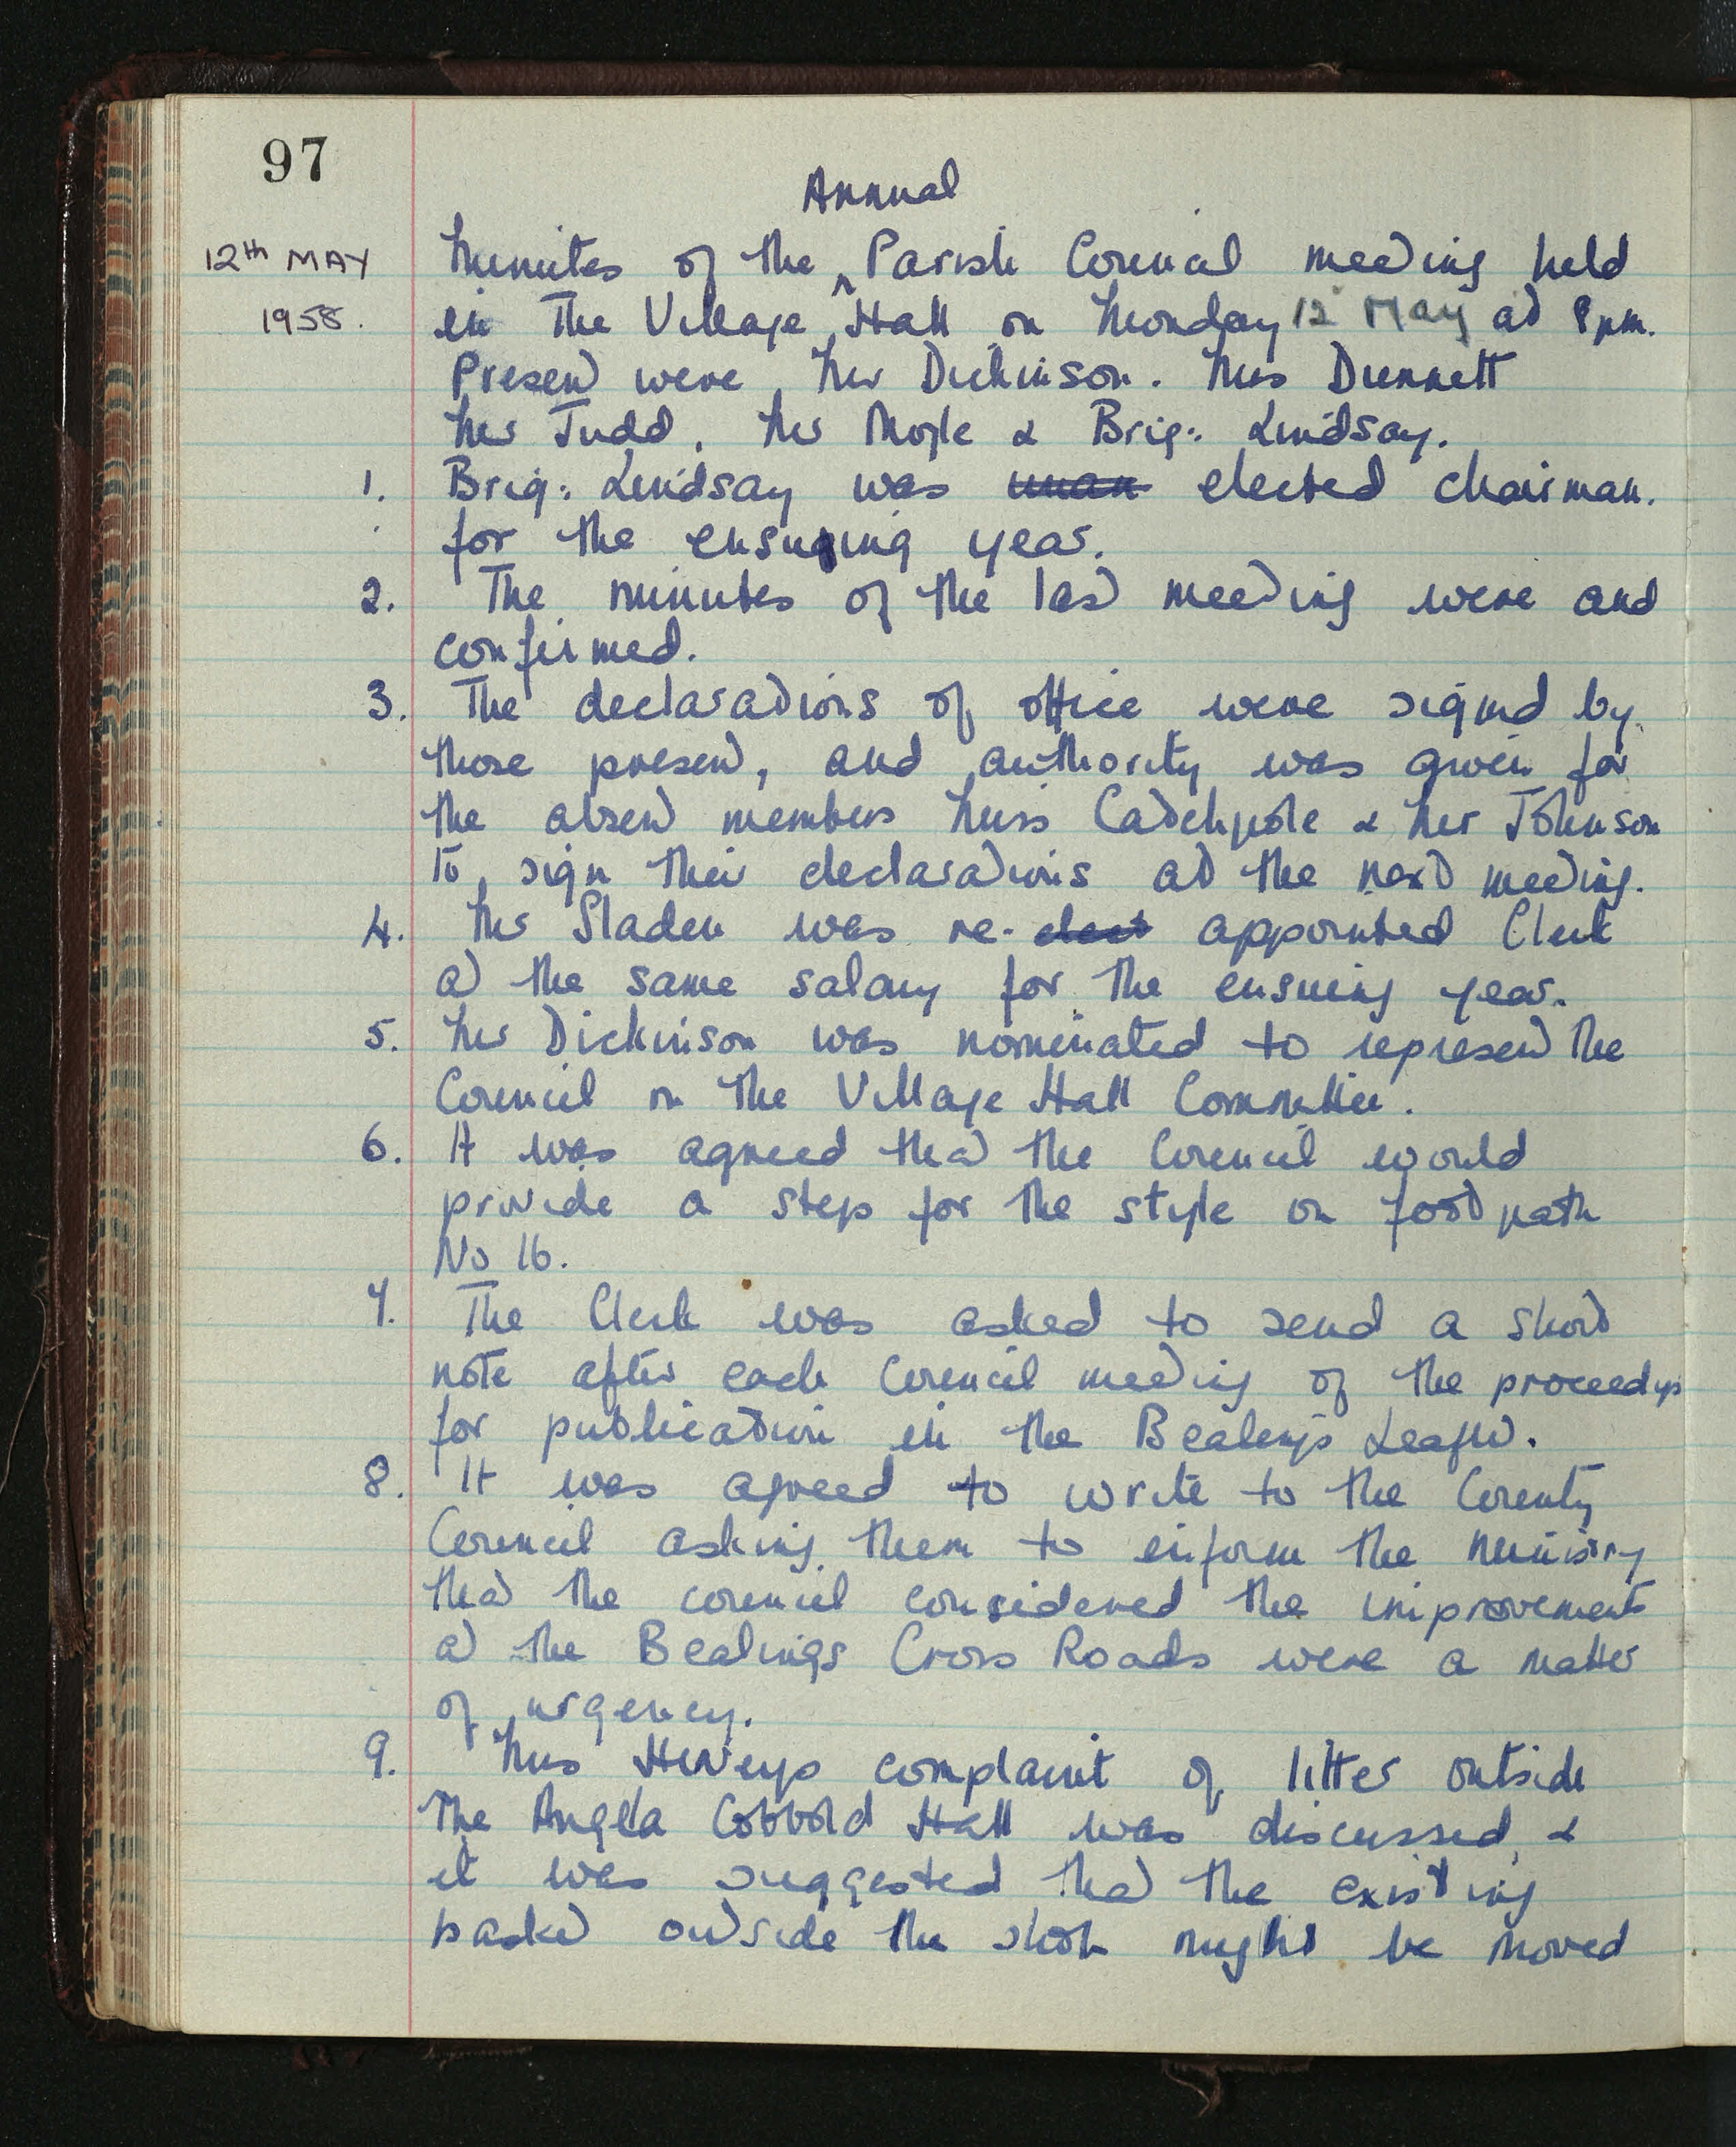 97
Annual
12th MAY
1958.
Minutes of the ^ Parish Council meeting held
in The Village Hall on Monday 12 May at 8 p.m.
Present were Mr Dickinson. Mrs Dunnett
Mr Judd, Mr Moyle & Brig: Lindsay.
1. Brig: Lindsay was unan elected chairman.
for the ensuing year.
2. The minutes of the last meeting were and
confirmed.
3. The declarations of office were signed by
those present, and authority was given for
the absent members Miss Catchpole & Mr Johnson
to sign their declarations at the next meeting.
4. Mr Sladen was re-elect appointed Clerk
at the same salary for the ensuing year.
5. Mr Dickinson was nominated to represent the
Council on the Village Hall Committee.
6. It was agreed that the Council would
provide a step for the style on footpath
No 16.
7. The Clerk was asked to send a short
note after each Council meeting of the proceedgs
for publication in the Bealings Leaflet.
8. It was agreed to write to the County
Council asking them to inform the Ministry
that the council considered the improvements
at the Bealings Cross Roads were a matter
of urgency.
9. Mrs complaint of litter outside
The Angela Cobbold Hall was discussed &
it was suggested that the existing
basket outside the shop might be moved